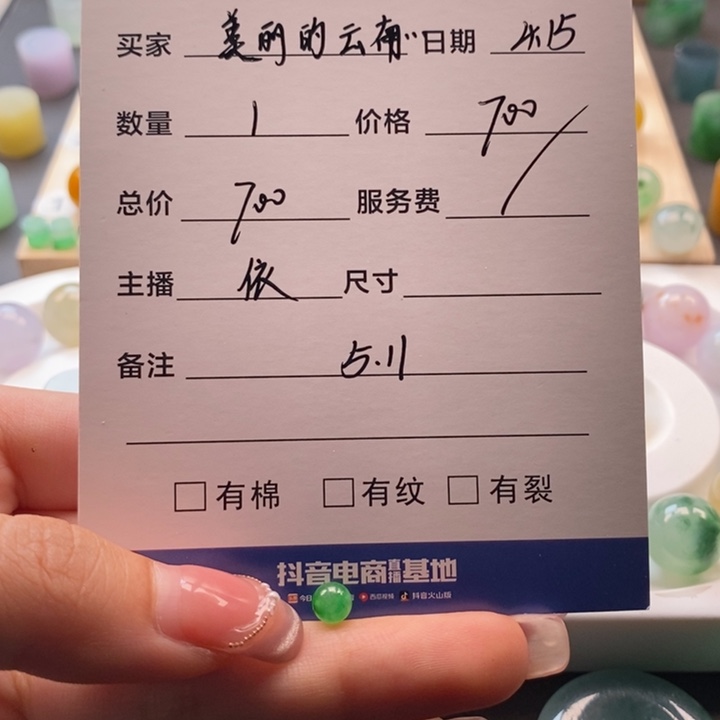 买家 美丽的云南… 日期 4.15
数量 1 价格 700
总价 700 服务费 /
主播 依 尺寸
备注 5.11
□有棉 □有纹 □有裂
抖音电商直播基地
今日 西瓜视频 抖音火山版